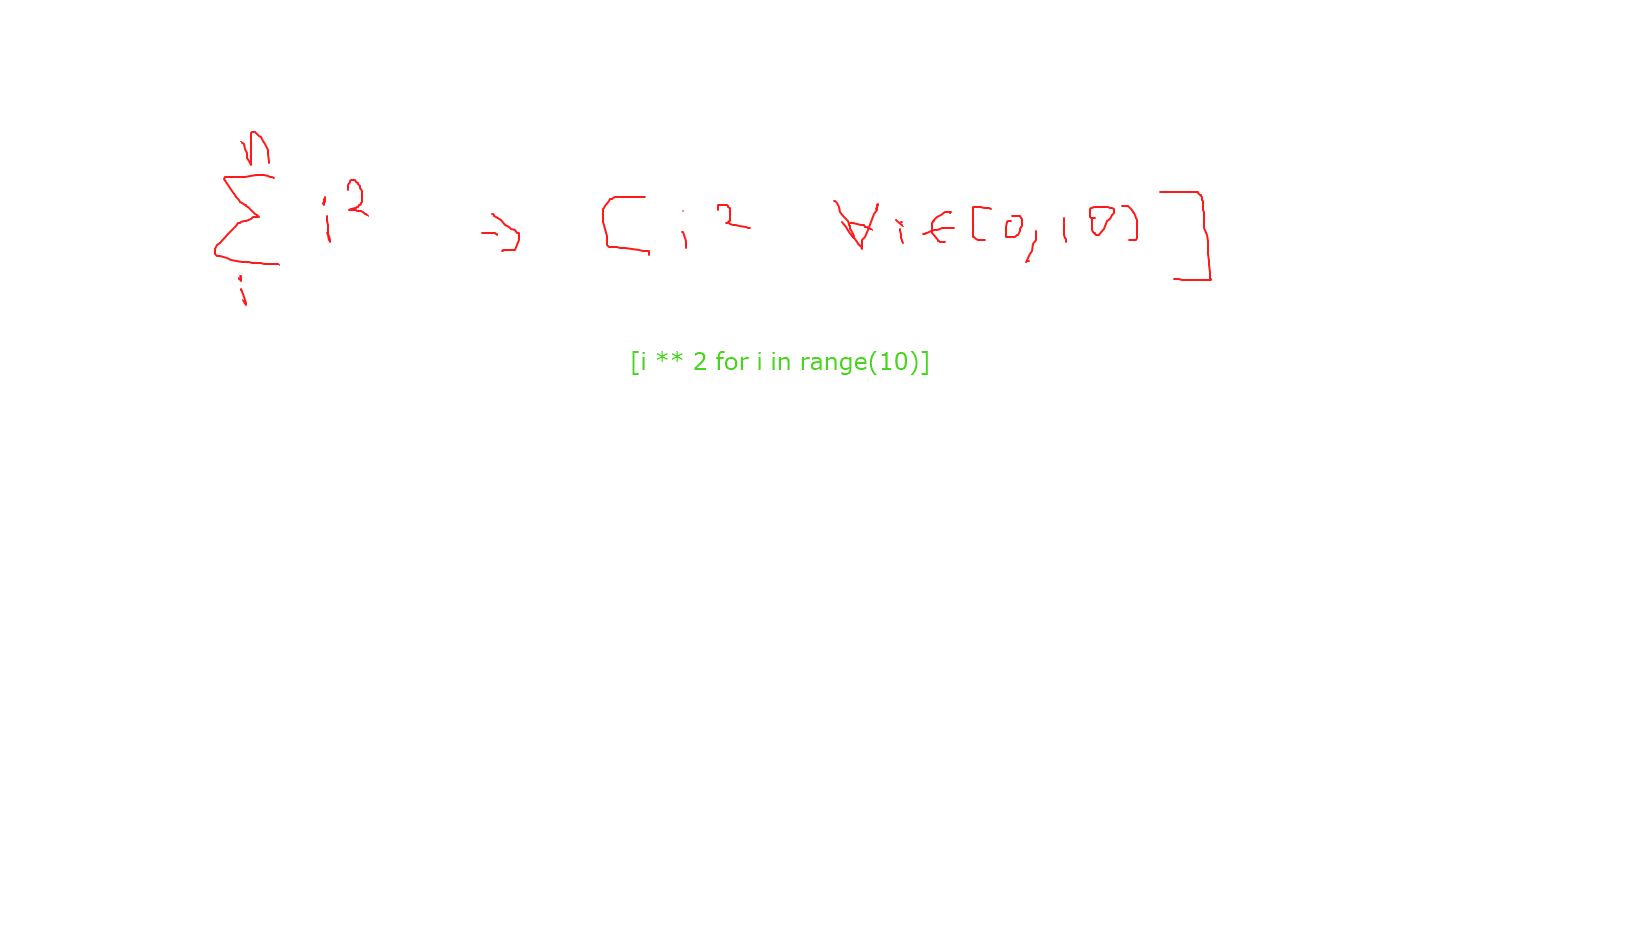 n
∑ i² → [ i² ∀ i ∈ [0, 10) ]
i
[i ** 2 for i in range(10)]